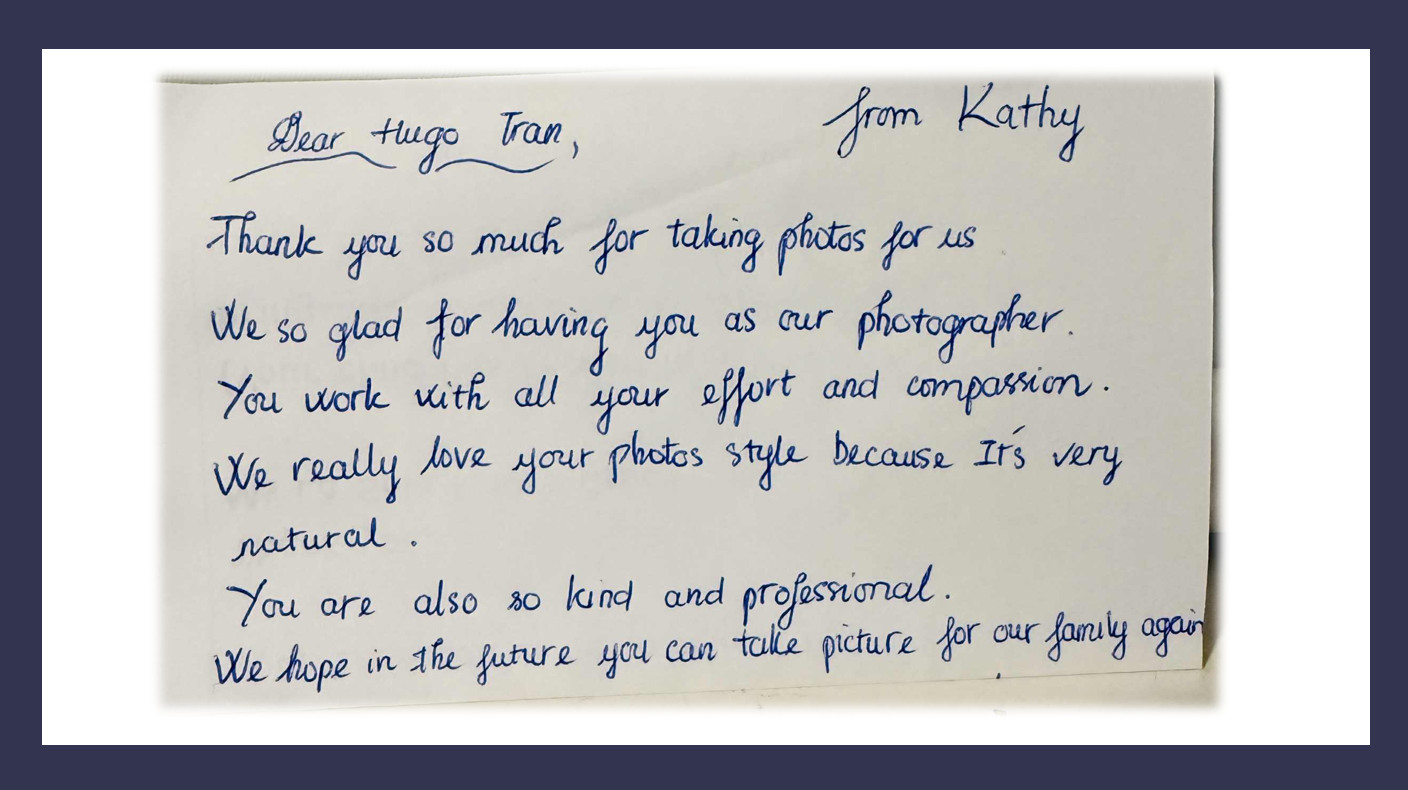 Dear Hugo Tran,
from Kathy
Thank you so much for taking photos for us
We so glad for having you as our photographer.
You work with all your effort and compassion.
We really love your photos style because It's very
natural.
You are also so kind and professional.
We hope in the future you can take picture for our family again